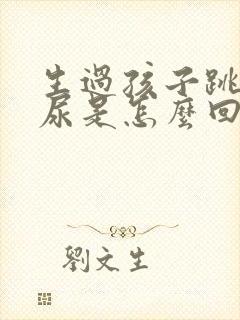 生過孩子跳
尿是怎麼回
劉文生